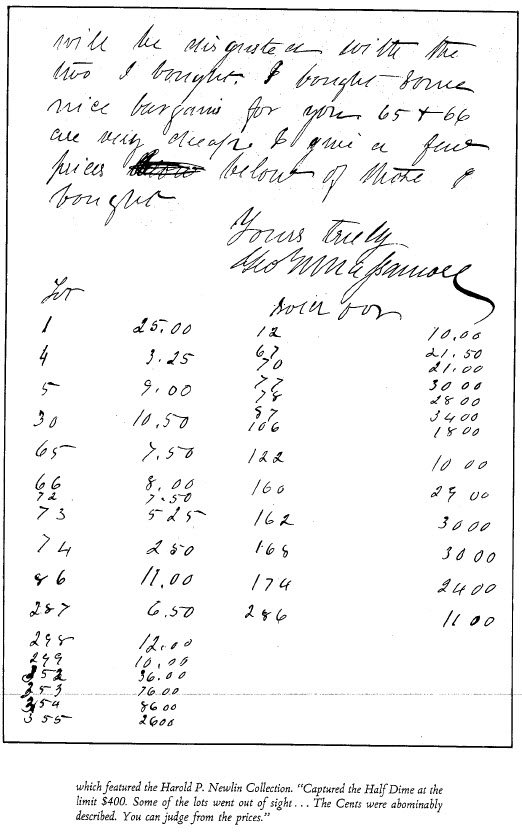 will be disgusted with the
two I bought. I bought some
nice bargains for you 65 + 66
are very cheap I give a few
prices below of those I
bought
Yours truly
Geo W Massamore
Lot
1 25.00
4 3.25
5 9.00
30 10,50
65 7,50
66 8.00
72 7.50
73 5 25
74 2 50
86 11.00
287 6.50
298 12.00
299 10.00
352 36.00
353 76.00
354 86 00
355 26 00
sold over
12 10.00
67 21.50
70 21.00
77 30 00
78 28 00
87 34 00
106 18 00
122 10 00
160 29 00
162 30 00
168 30 00
174 24 00
286 11 00
which featured the Harold P. Newlin Collection. "Captured the Half Dime at the
limit $400. Some of the lots went out of sight . . . The Cents were abominably
described. You can judge from the prices."